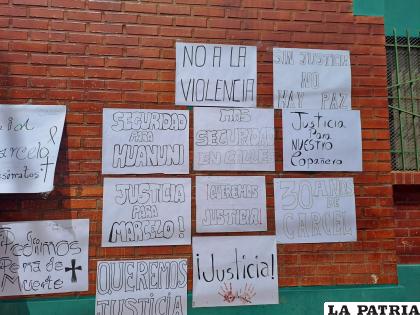 NO A LA
VIOLENCIA
SIN JUSTICIA
NO
HAY PAZ
SEGURIDAD
PARA
HUANUNI
MAS
SEGURIDAD
EN CALLES
Justicia
Para
NUESTRO
Copañero
JUSTICIA
PARA
MARCELO!
QUEREMOS
JUSTICIA!
30 AÑOS
DE
CARCEL
Pedimos
Pena de
Muerte
QUEREMOS
JUSTICIA
¡Justicia!
LA PATRIA